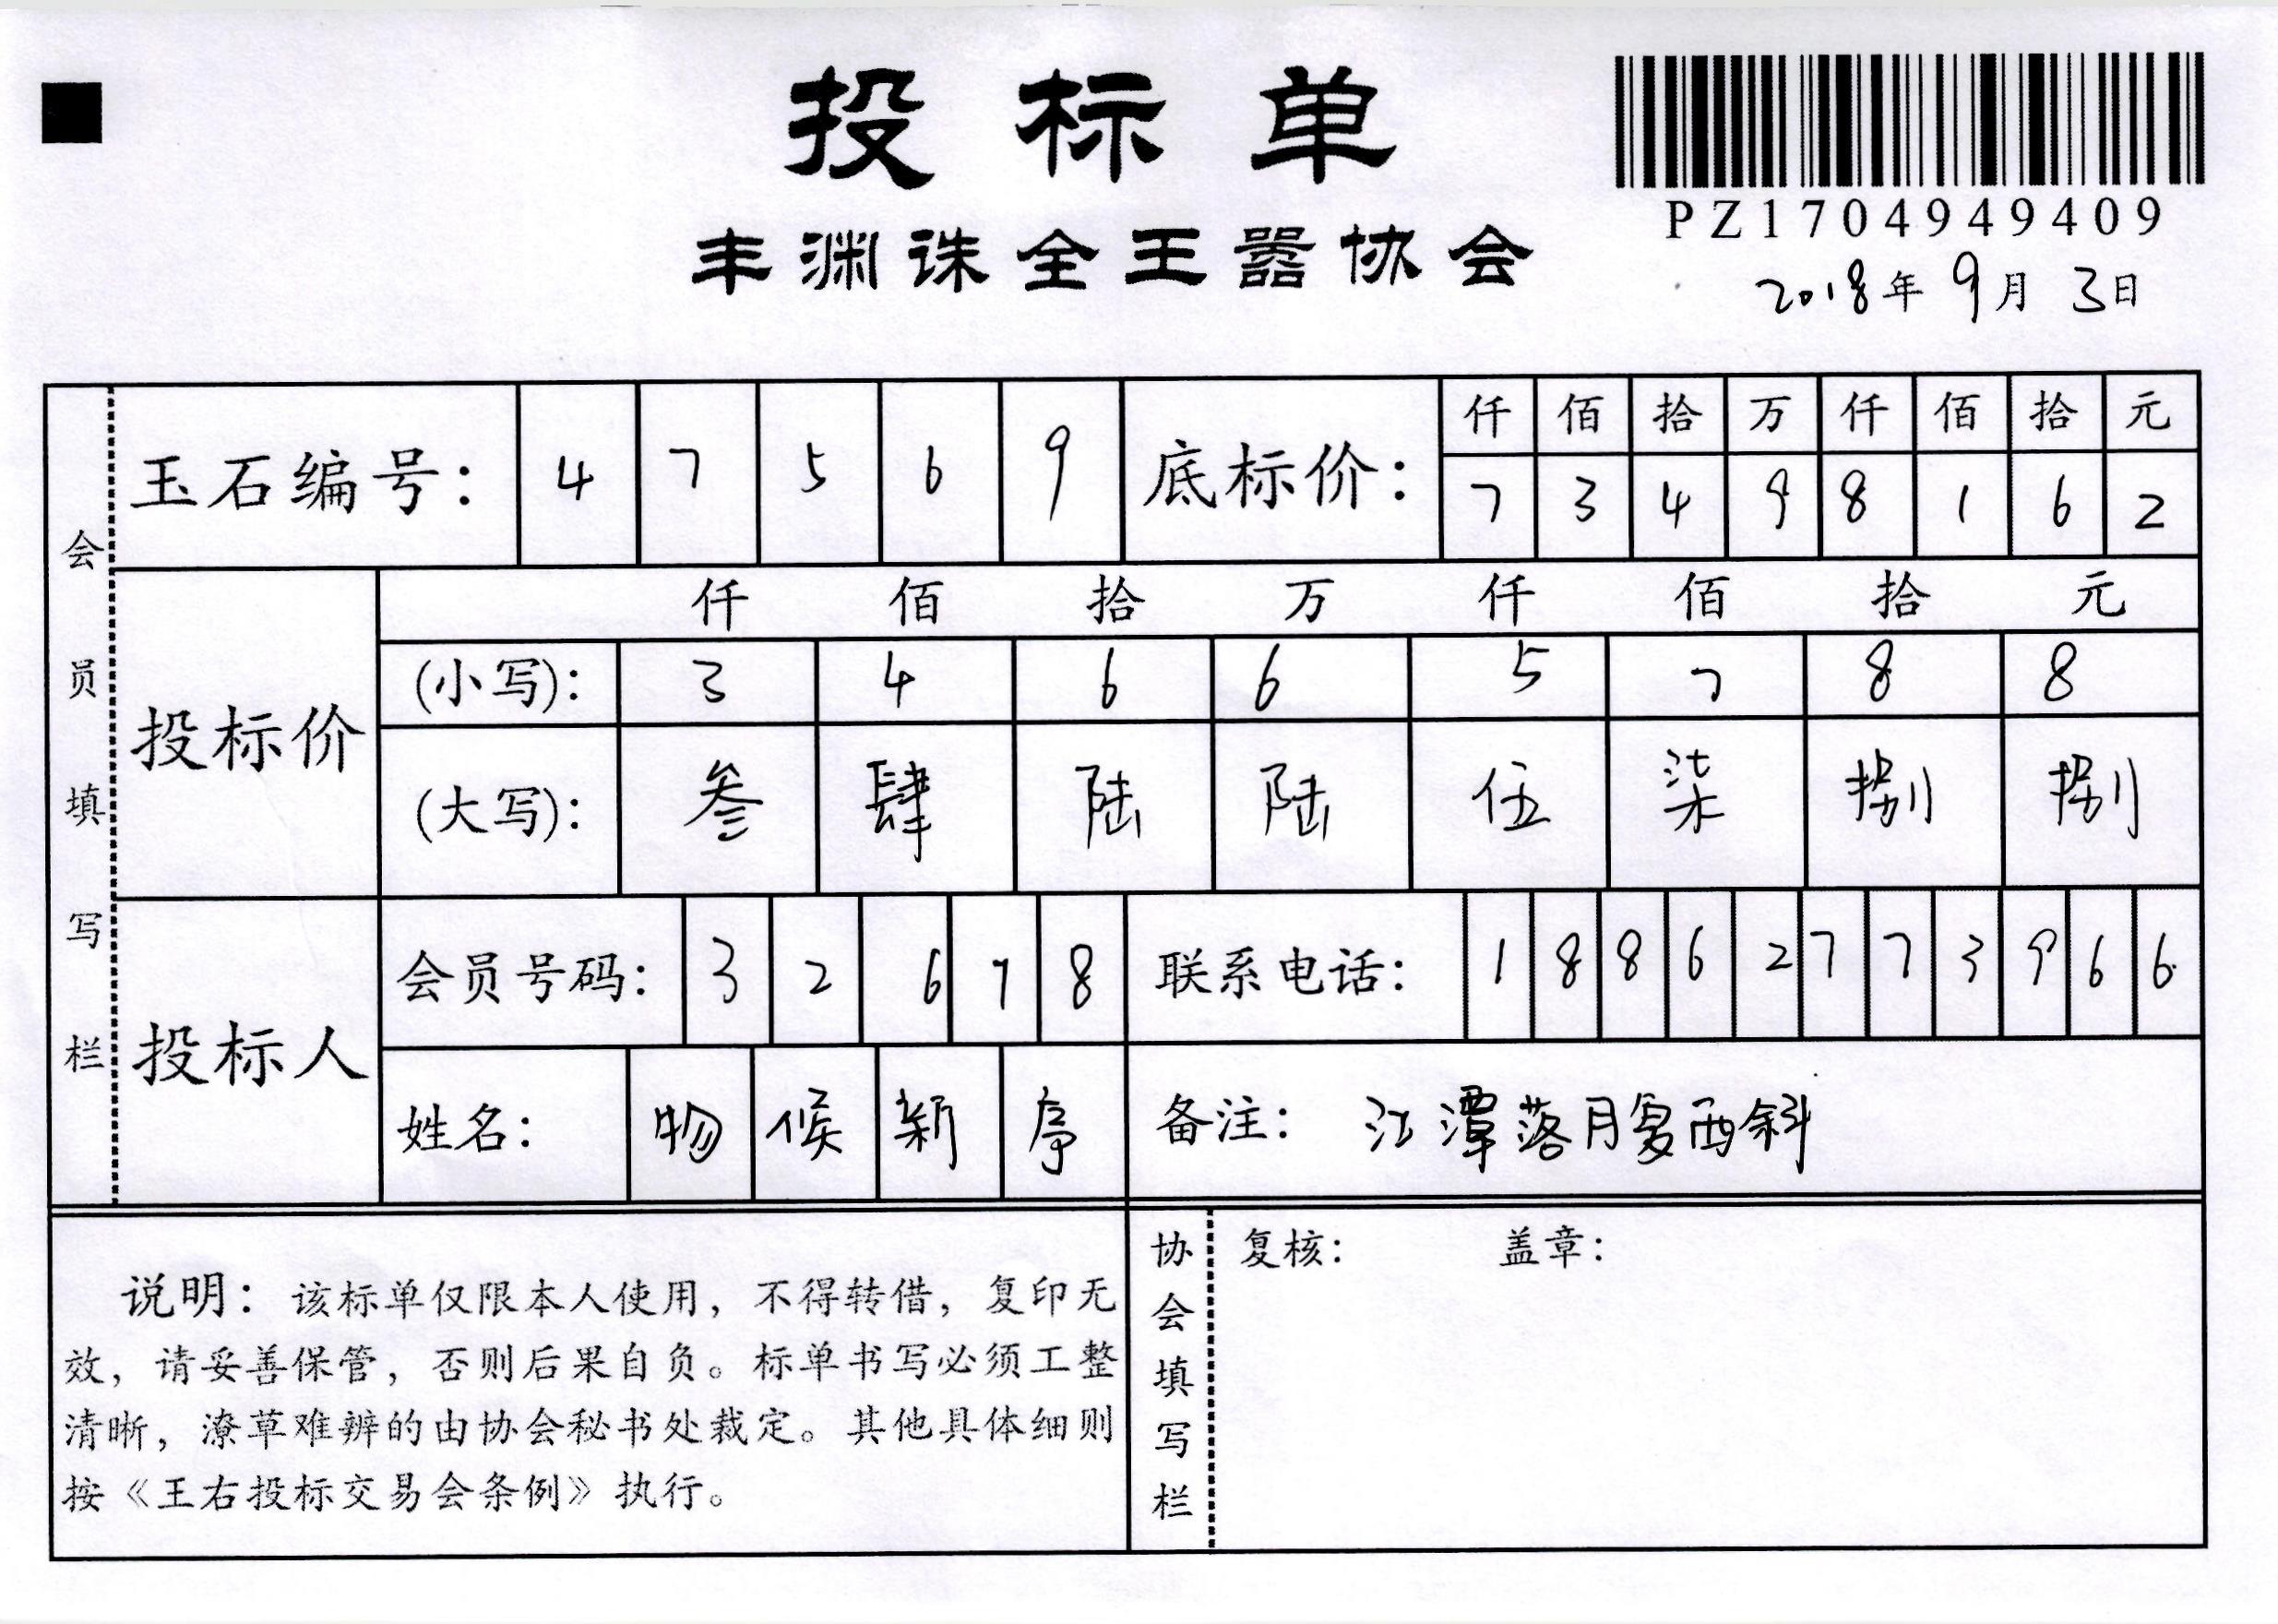 投标单
PZ1704949409
丰渊诛全王嚣协会
2018年9月3日
会员填写栏
玉石编号： 4 7 5 6 9
底标价： 仟 佰 拾 万 仟 佰 拾 元
7 3 4 9 8 1 6 2
投标价
仟 佰 拾 万 仟 佰 拾 元
(小写)： 3 4 6 6 5 7 8 8
(大写)： 叁 肆 陆 陆 伍 柒 捌 捌
投标人
会员号码： 3 2 6 7 8
联系电话： 1 8 8 6 2 7 7 3 9 6 6
姓名： 物 候 新 序
备注： 江潭落月复西斜
说明：该标单仅限本人使用，不得转借，复印无
效，请妥善保管，否则后果自负。标单书写必须工整
清晰，潦草难辨的由协会秘书处裁定。其他具体细则
按《王右投标交易会条例》执行。
协会填写栏
复核： 盖章：